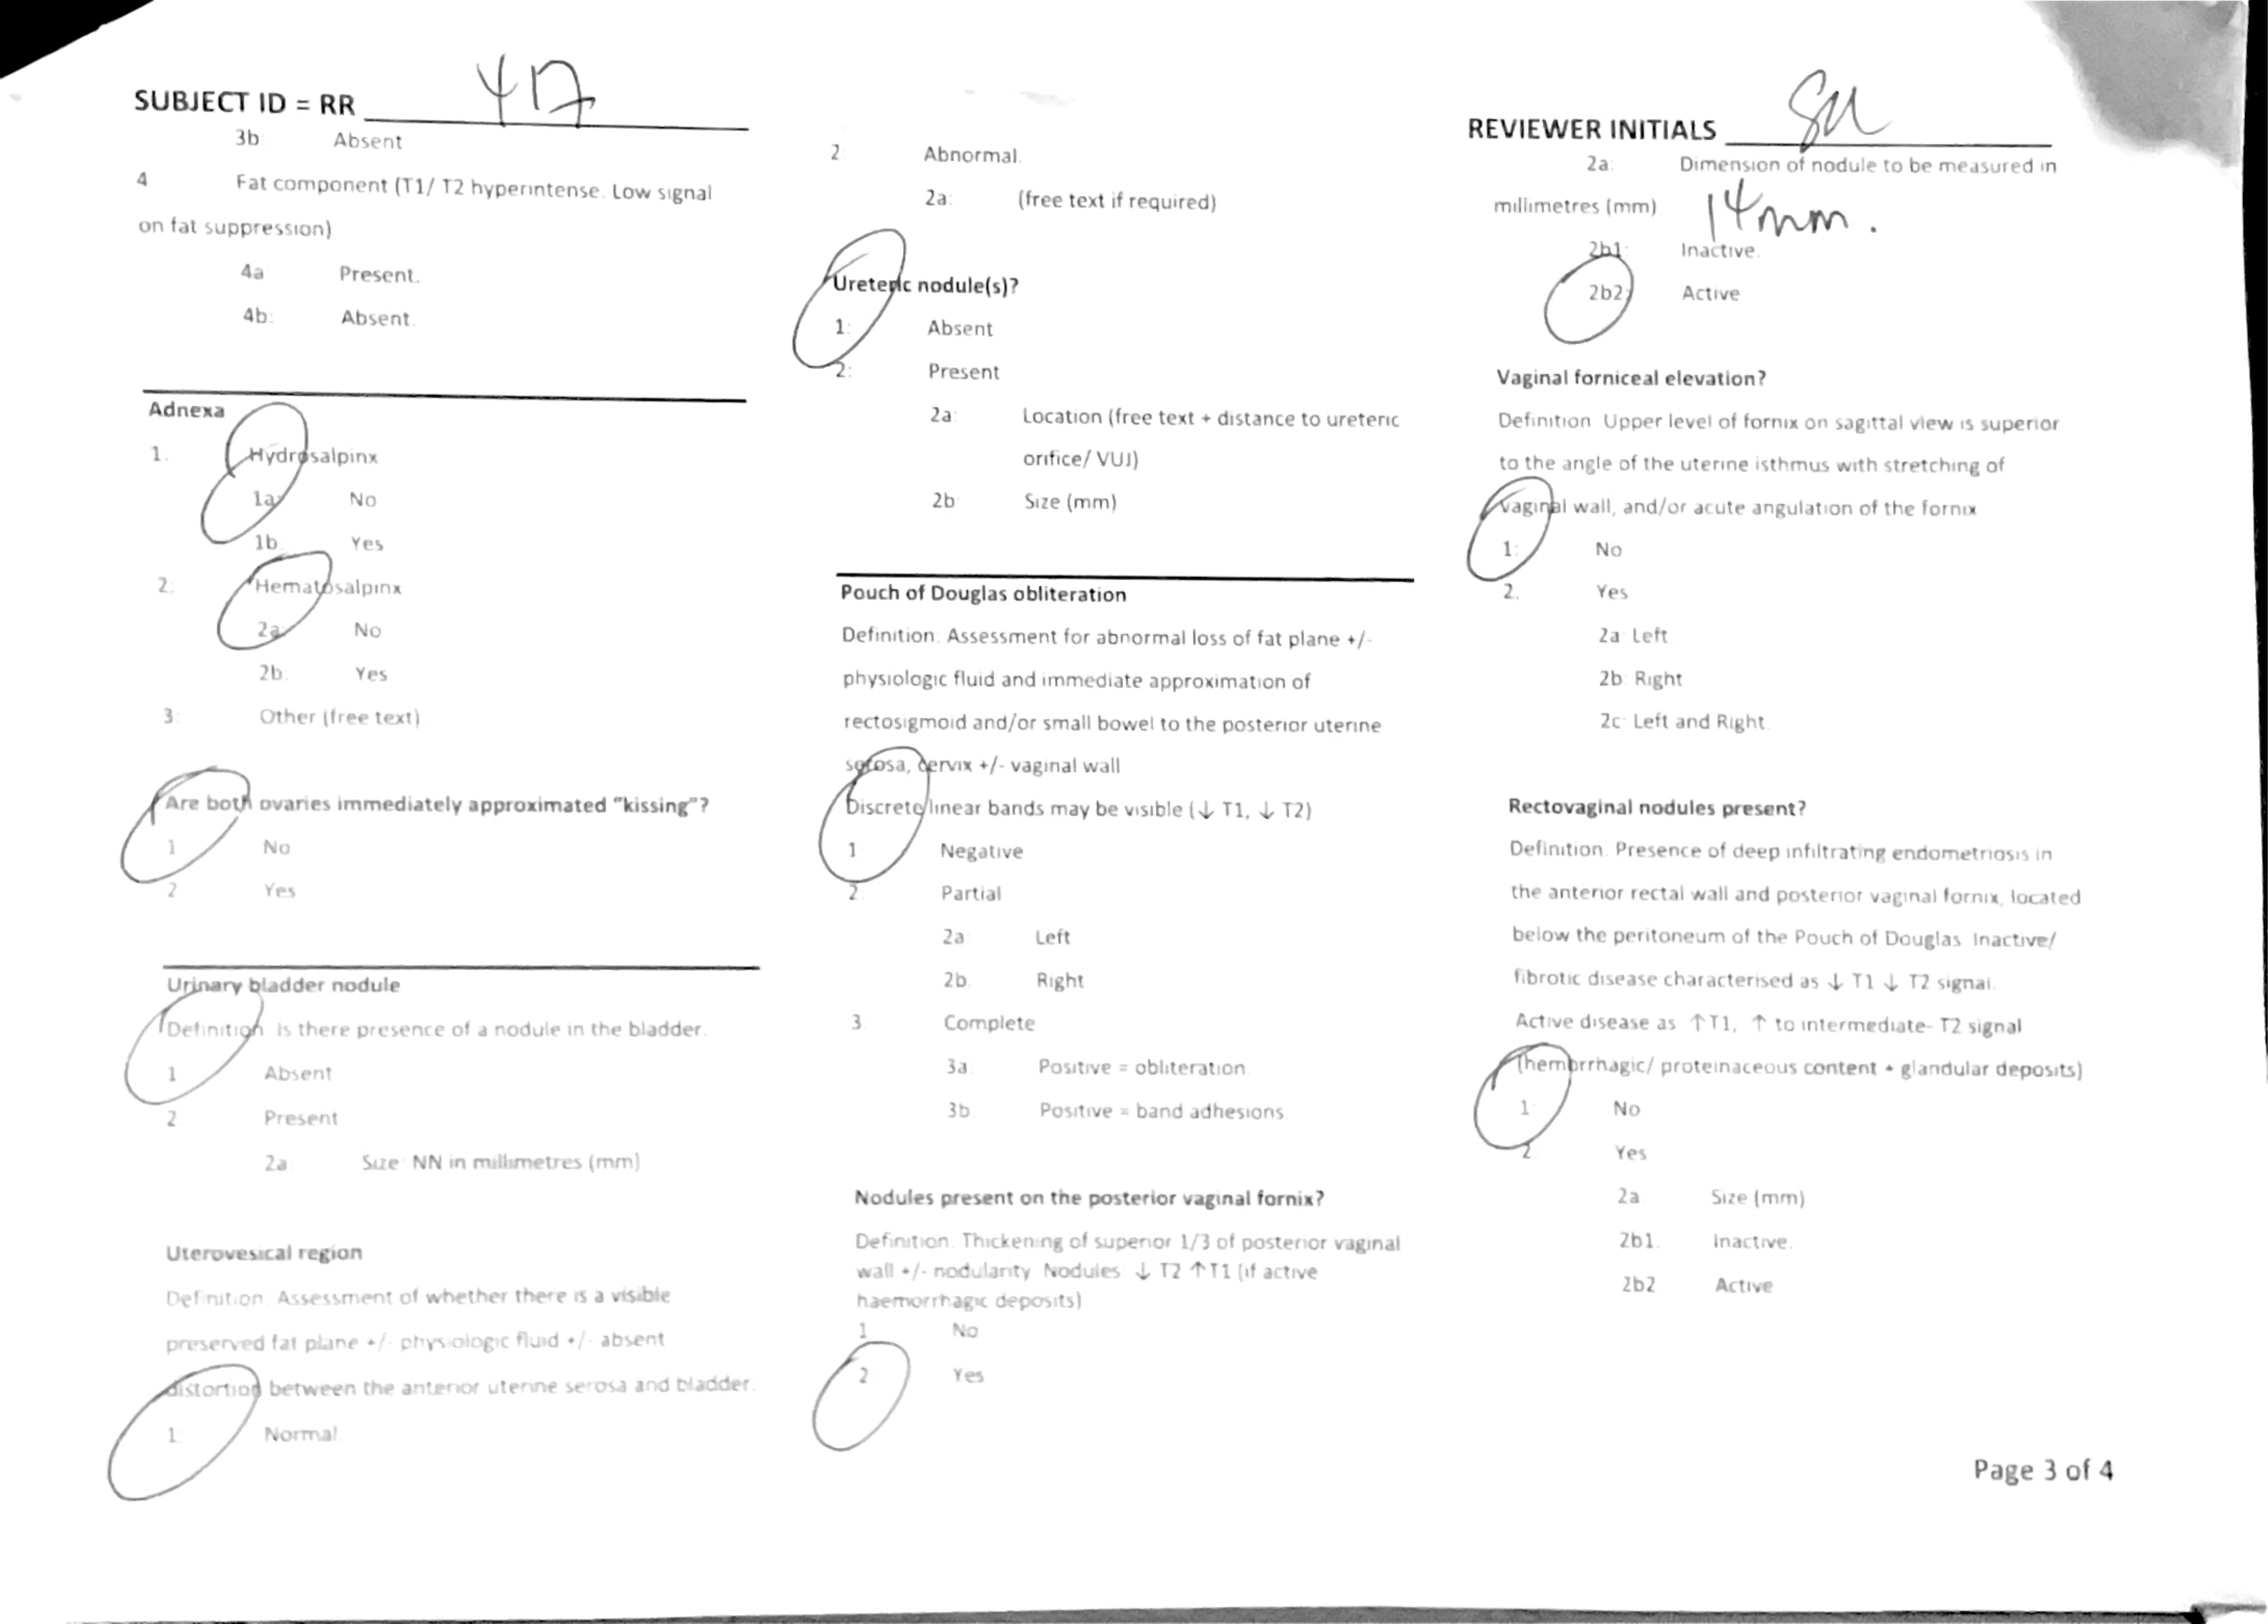 SUBJECT ID = RR 417
3b: Absent
4 Fat component (T1/ T2 hyperintense. Low signal
on fat suppression)
4a Present.
4b: Absent.
Adnexa
1. Hydrosalpinx
1a: No
1b. Yes
2: Hematosalpinx
2a: No
2b: Yes
3: Other (free text)
Are both ovaries immediately approximated "kissing"?
1 No
2 Yes
Urinary bladder nodule
Definition Is there presence of a nodule in the bladder.
1 Absent
2 Present
2a. Size: NN in millimetres (mm)
Uterovesical region
Definition: Assessment of whether there is a visible
preserved fat plane +/- physiologic fluid +/- absent
distortion between the anterior uterine serosa and bladder.
1: Normal
2: Abnormal.
2a: (free text if required)
Ureteric nodule(s)?
1: Absent
2: Present
2a: Location (free text + distance to ureteric
orifice/ VUJ)
2b Size (mm)
Pouch of Douglas obliteration
Definition: Assessment for abnormal loss of fat plane +/-
physiologic fluid and immediate approximation of
rectosigmoid and/or small bowel to the posterior uterine
serosa, cervix +/- vaginal wall
Discrete linear bands may be visible (↓ T1, ↓ T2)
1 Negative
2. Partial
2a Left
2b. Right
3. Complete
3a: Positive = obliteration.
3b Positive = band adhesions
Nodules present on the posterior vaginal fornix?
Definition. Thickening of superior 1/3 of posterior vaginal
wall +/- nodularity Nodules: ↓ T2 ↑T1 (if active
haemorrhagic deposits)
1 No
2 Yes
REVIEWER INITIALS
2a: Dimension of nodule to be measured in
millimetres (mm) 14mm.
2b1: Inactive.
2b2: Active
Vaginal forniceal elevation?
Definition Upper level of fornix on sagittal view is superior
to the angle of the uterine isthmus with stretching of
vaginal wall, and/or acute angulation of the fornix
1: No
2. Yes
2a: Left
2b: Right
2c: Left and Right.
Rectovaginal nodules present?
Definition. Presence of deep infiltrating endometriosis in
the anterior rectal wall and posterior vaginal fornix, located
below the peritoneum of the Pouch of Douglas Inactive/
fibrotic disease characterised as ↓ T1 ↓ T2 signal.
Active disease as ↑T1, ↑ to intermediate- T2 signal
(hemorrhagic/ proteinaceous content + glandular deposits)
1 No
2 Yes
2a Size (mm)
2b1. Inactive.
2b2 Active
Page 3 of 4